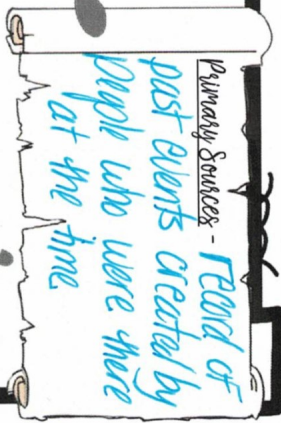 Primary Sources - record of
past events created by
people who were there
at the time